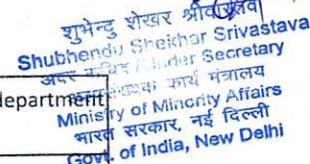 शुभेन्दु शेखर श्रीवास्तव
Shubhendu Shekhar Srivastava
अवर सचिव / Under Secretary
अल्पसंख्यक कार्य मंत्रालय
department
Ministry of Minority Affairs
भारत सरकार, नई दिल्ली
Govt. of India, New Delhi